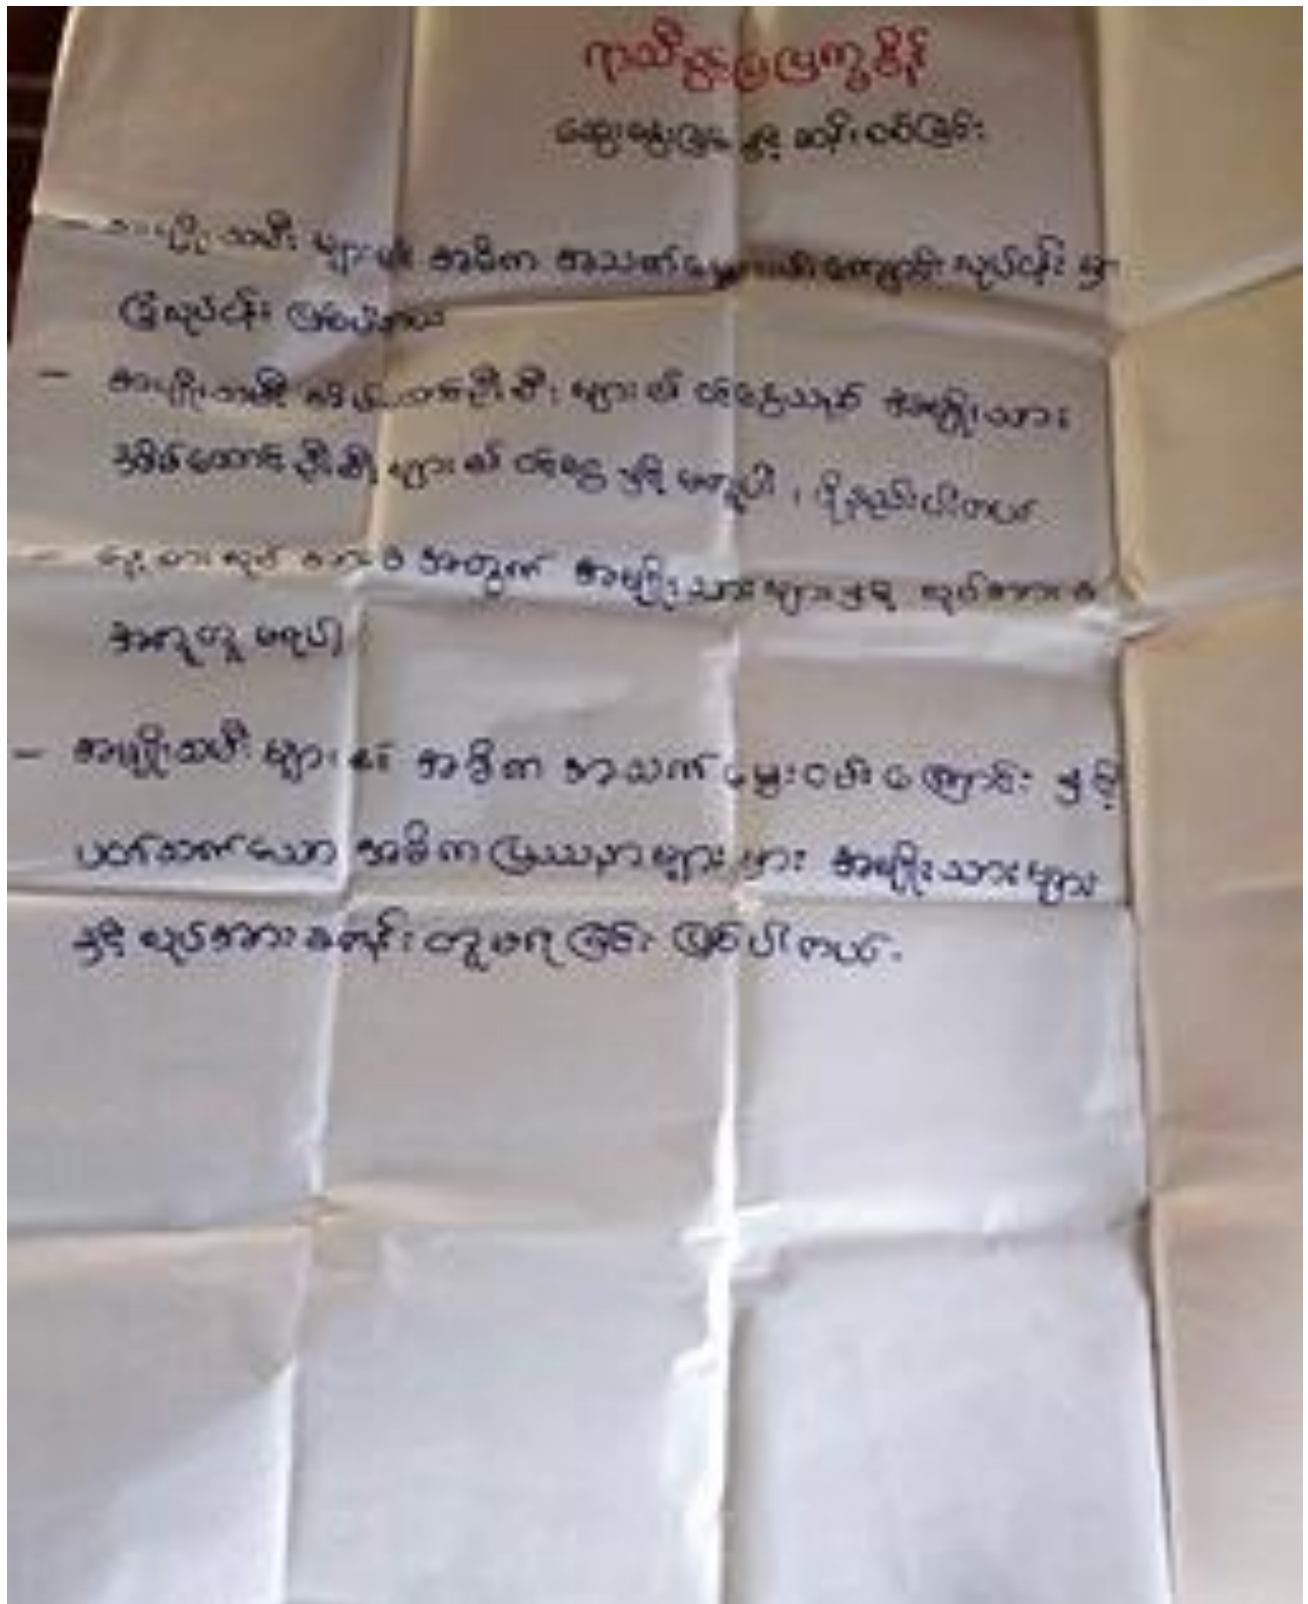 ရာသီခွင်ပြပြက္ခဒိန်
ဆွေးနွေးပြီး နှင့် ဆန်းစစ်ခြင်း
- အမျိုးသမီး များ၏ အဓိက အသက်မွေးဝမ်းကျောင်း လုပ်ငန်း မှာ
ခြံလုပ်ငန်း ဖြစ်ပါတယ်
- အမျိုးသမီး ဦးစီး များ၏ ဝင်ငွေသည် အမျိုးသား
အိမ်ထောင်ဦးစီး များ၏ ဝင်ငွေ နှင့် မတူပါ ၊ ပိုနည်းပါတယ်
- လုပ် အားခ အတွက် အမျိုးသားများနှင့် လုပ်အားခ
အတူတူ မရပါ
- အမျိုးသမီး များ ၏ အဓိက အသက်မွေးဝမ်းကြောင်း နှင့်
ပတ်သက်သော အဓိက ပြဿနာများ မှာ အမျိုးသားများ
နှင့် လုပ်အားခတန်းတူမရခြင်း ဖြစ်ပါတယ်.